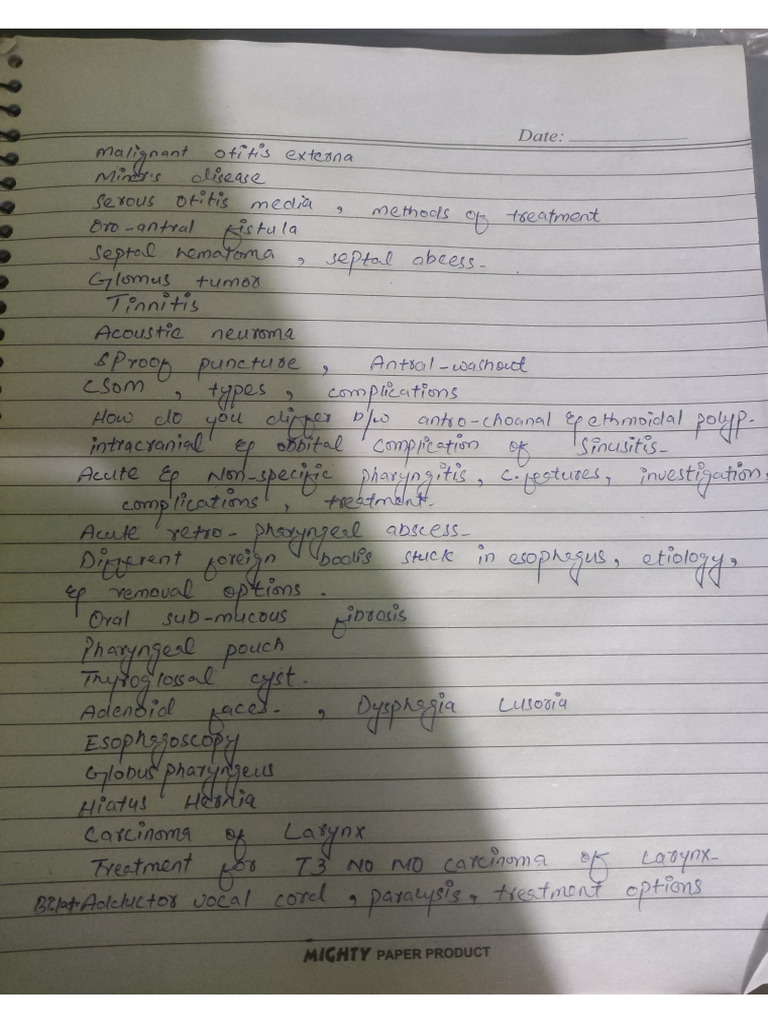 Date:
Malignant otitis externa
Miner's disease
Serous Otitis media, methods of treatment
Oro-antral fistula
Septal hematoma, septal abcess-
Glomus tumor
Tinnitis
Acoustic neuroma
Proof puncture, Antral-washout
CSOM, types, complications
How do you differ b/w antro-choanal & ethmoidal polyp.
intracranial & orbital complication of Sinusitis-
Acute & Non-specific pharyngitis, c. features, investigation,
complications, treatment.
Acute retro-pharyngeal abscess-
Different foreign bodis stuck in esophagus, etiology,
& removal options.
Oral sub-mucous fibrosis
Pharyngeal pouch
Thyroglossal cyst.
Adenoid faces-, Dysphagia Lusoria
Esophagoscopy
Globus pharyngeus
Hiatus Hernia
Carcinoma of Larynx
Treatment for T3 N0 M0 carcinoma of Larynx-
Bilat. Adductor vocal cord, paralysis, treatment options
MIGHTY PAPER PRODUCT